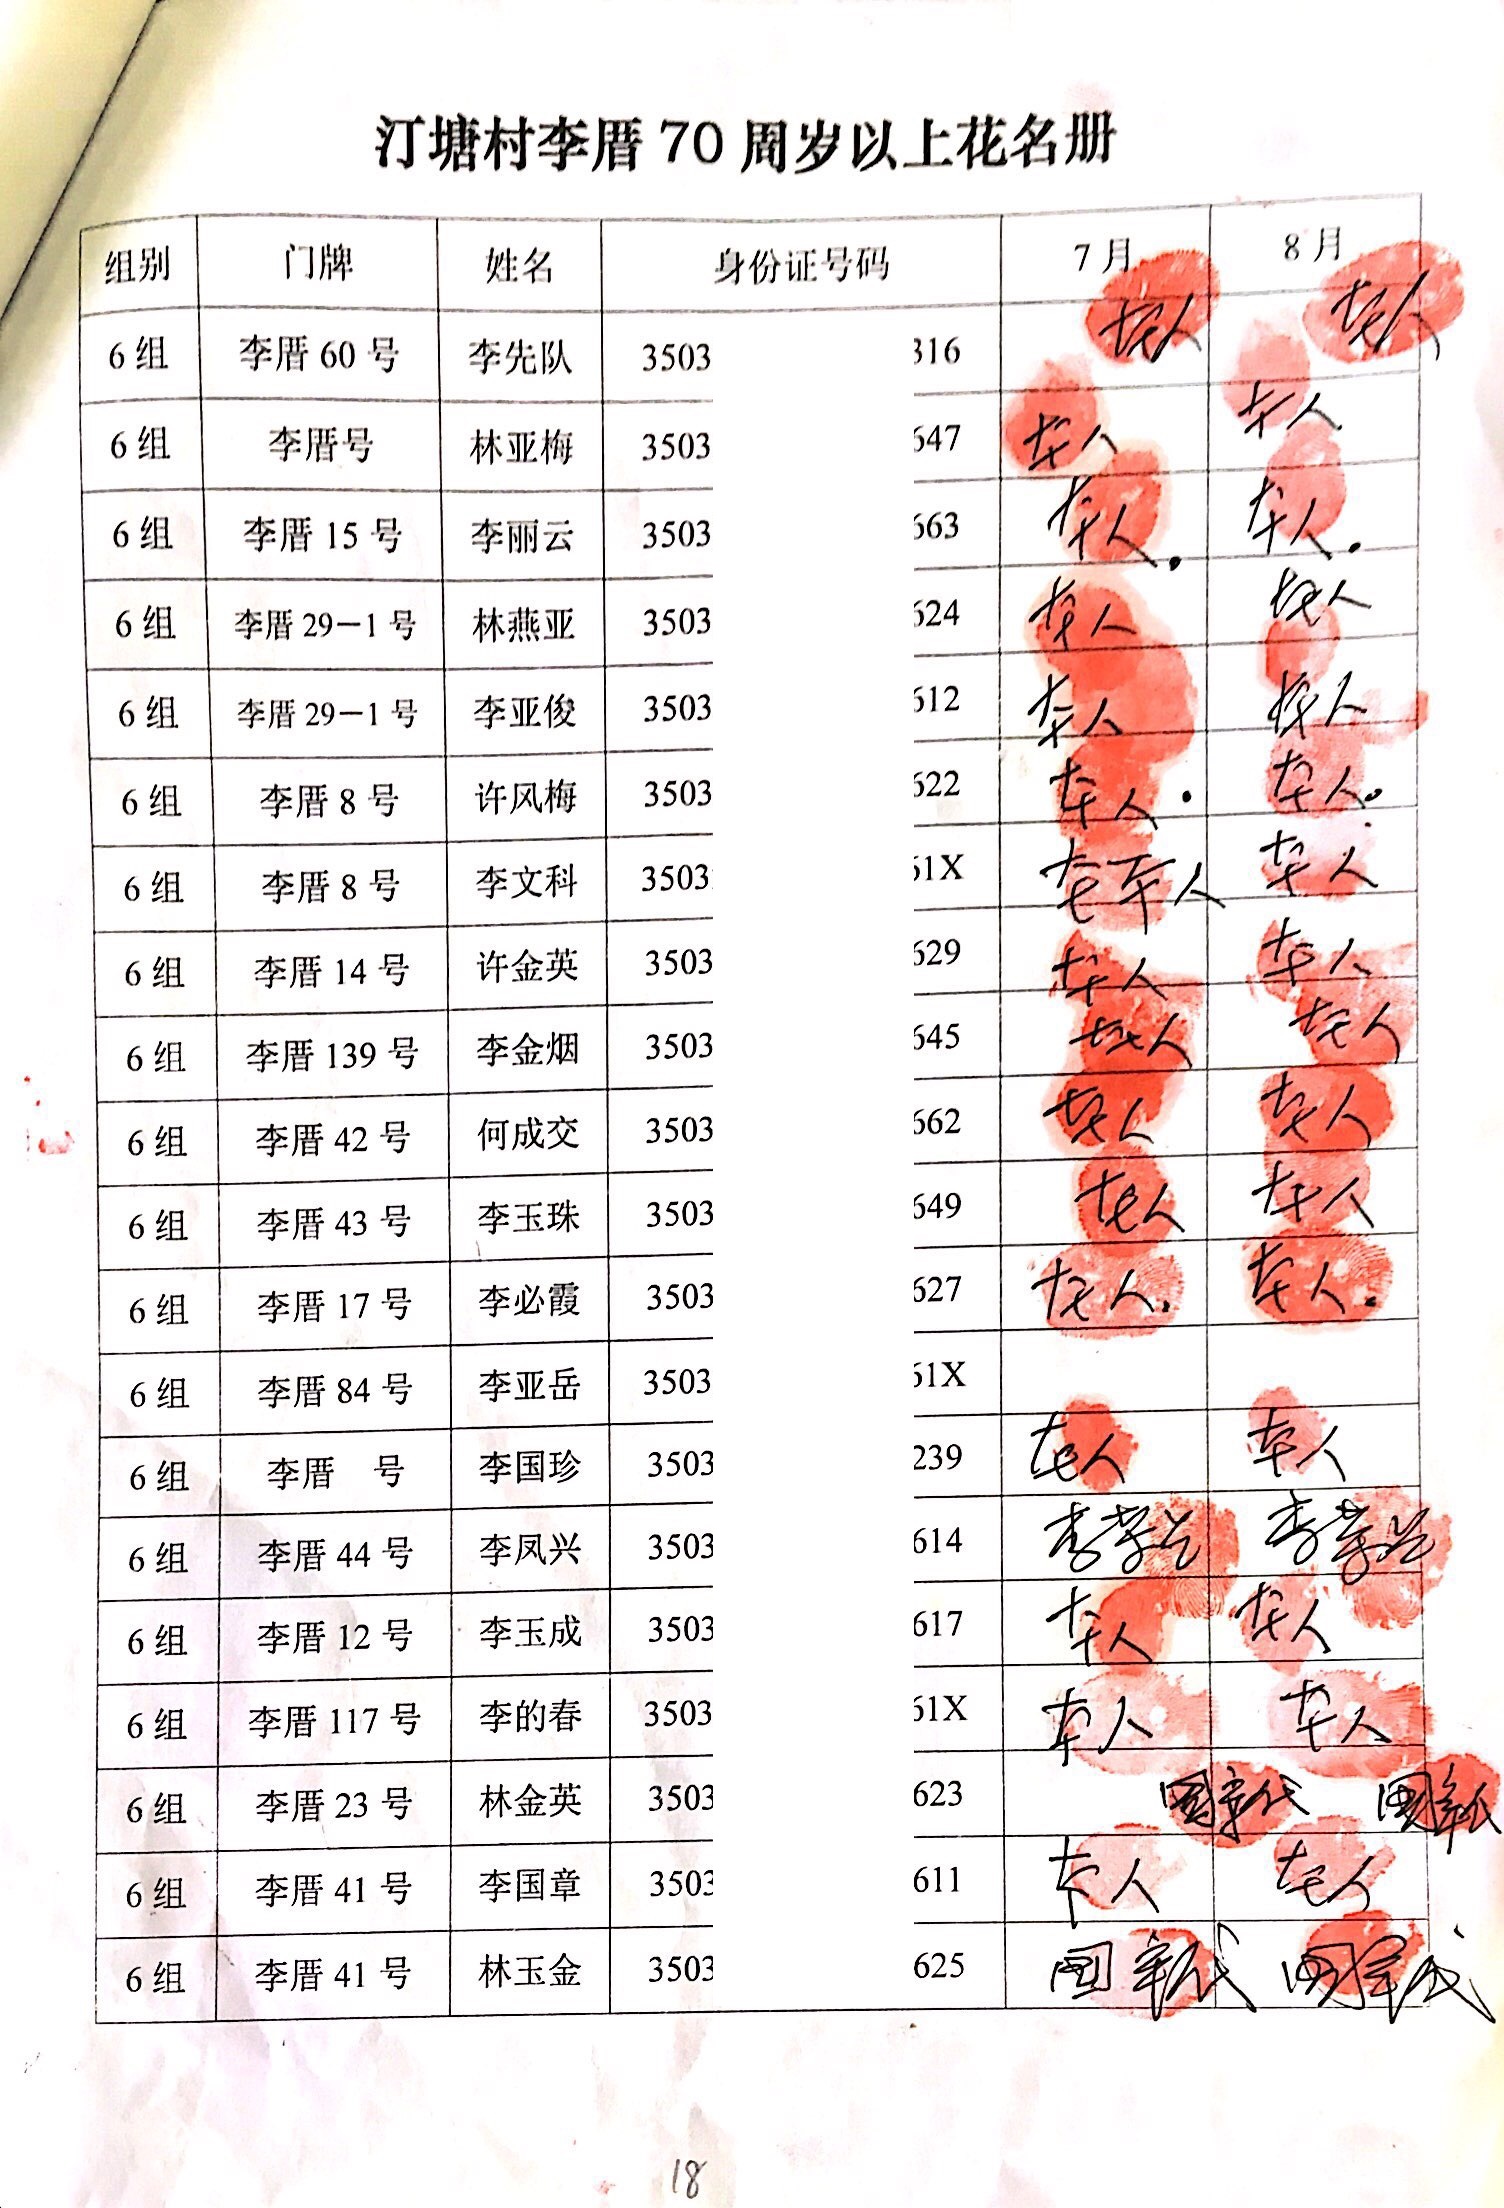 汀塘村李厝 70 周岁以上花名册
组别 门牌 姓名 身份证号码 7月 8月
6组 李厝 60 号 李先队 3503 316 本人 本人
6组 李厝号 林亚梅 3503 647 本人 本人
6组 李厝 15 号 李丽云 3503 663 本人. 本人.
6组 李厝 29－1 号 林燕亚 3503 624 本人 本人
6组 李厝 29－1 号 李亚俊 3503 612 本人 本人
6组 李厝 8 号 许风梅 3503 622 本人. 本人.
6组 李厝 8 号 李文科 3503 61X 本人 本人
6组 李厝 14 号 许金英 3503 629 本人 本人
6组 李厝 139 号 李金烟 3503 645 本人 本人
6组 李厝 42 号 何成交 3503 662 本人 本人
6组 李厝 43 号 李玉珠 3503 649 本人 本人
6组 李厝 17 号 李必霞 3503 627 本人. 本人.
6组 李厝 84 号 李亚岳 3503 61X
6组 李厝 号 李国珍 3503 239 本人 本人
6组 李厝 44 号 李凤兴 3503 614
6组 李厝 12 号 李玉成 3503 617 本人 本人
6组 李厝 117 号 李的春 3503 61X 本人 本人
6组 李厝 23 号 林金英 3503 623 国章代 国章代
6组 李厝 41 号 李国章 3503 611 本人 本人
6组 李厝 41 号 林玉金 3503 625 国章代 国章代
18